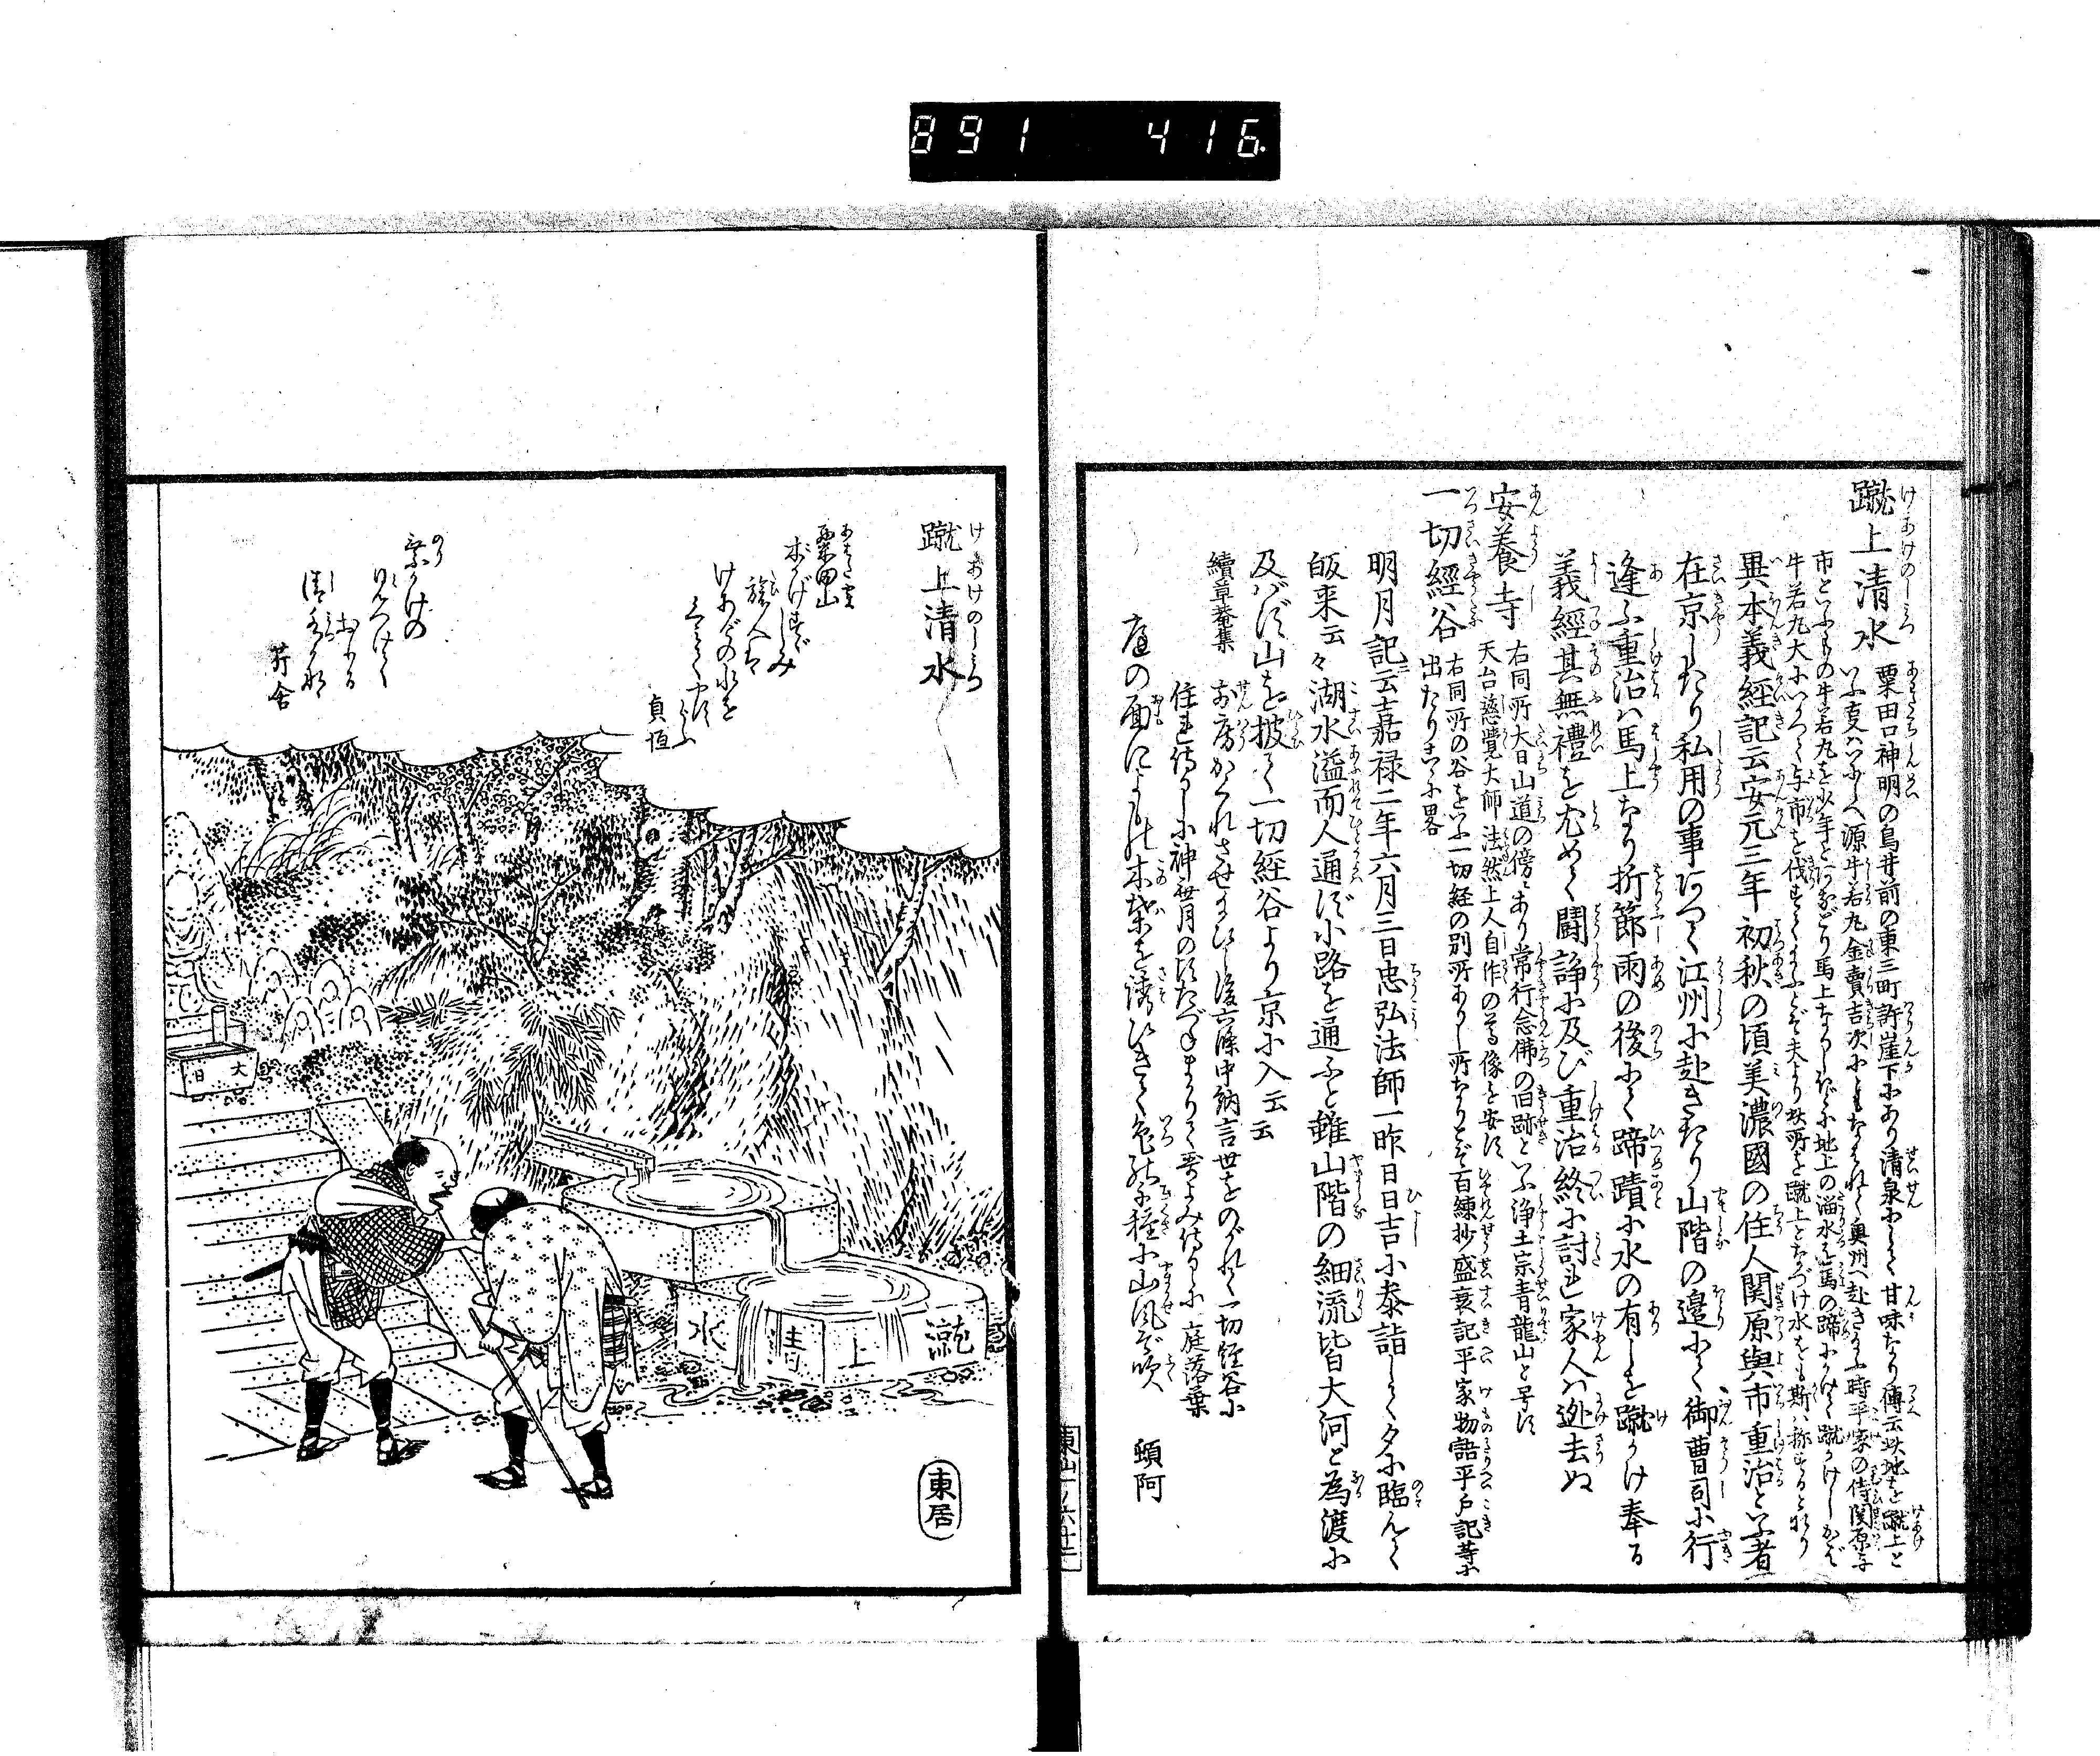 891 416
蹴上清水
粟田口神明の鳥井前の東三町許崖下にあり清泉にして甘味なり傳云此地を蹴上と
いふ事はいにしへ源牛若丸金賣吉次にともなはれて奥州へ赴きたまふ時平家の侍関原与
市といふもの牛若丸を少年とあなどり馬上なりしが地上の溜水を馬の蹄にかけて蹴かけしかば
牛若丸大にいかつて与市を伐すてたまふとぞ夫より此所を蹴上となづけ水をも斯は称するとなり
異本義經記云安元三年初秋の頃美濃國の住人関原與市重治といふ者
在京したり私用の事ありて江州に赴きたり山階の邉にて御曹司に行
逢ふ重治は馬上なり折節雨の後にて蹄蹟に水の有しを蹴かけ奉る
義經其無禮を尤めて闘諍に及び重治終に討れ家人は迯去ぬ
安養寺
右同所大日山道の傍にあり常行念佛の旧跡といふ浄土宗青龍山と号す
天台慈覺大師法然上人自作の尊像を安す
一切經谷
右同所の谷をいふ一切経の別所ありし所なりとぞ百練抄盛衰記平家物語平戸記等に
出たりこゝに畧
明月記云嘉禄二年六月三日忠弘法師一昨日日吉に参詣して夕に臨んて
皈来云々湖水溢而人通ぜず小路を通ふと雖山階の細流皆大河と為渡に
及ばず山を披て一切経谷より京に入云云
續草菴集
前房かくれさせ給ひし後六條中納言世をのがれて一切経谷に
住侍りしに神無月のすゑたづねまかりて哥よみ侍りしに庭落葉
庭の面によもの木葉を誘ひきて
山風ぞ吹
頓阿
東山一ノ六十二
蹴上清水
粟田山
木かげすゞしみ
旅人も
けあげの水を
貞恒
乗かけの
見つけて
清水かな
芹舎
大日
蹴上清水
東居